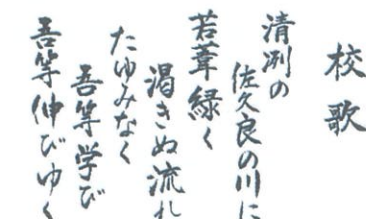 校歌
清冽の
佐久良の川に
若葦緑く
渇きぬ流れ
たゆみなく
吾等学び
吾等伸びゆく